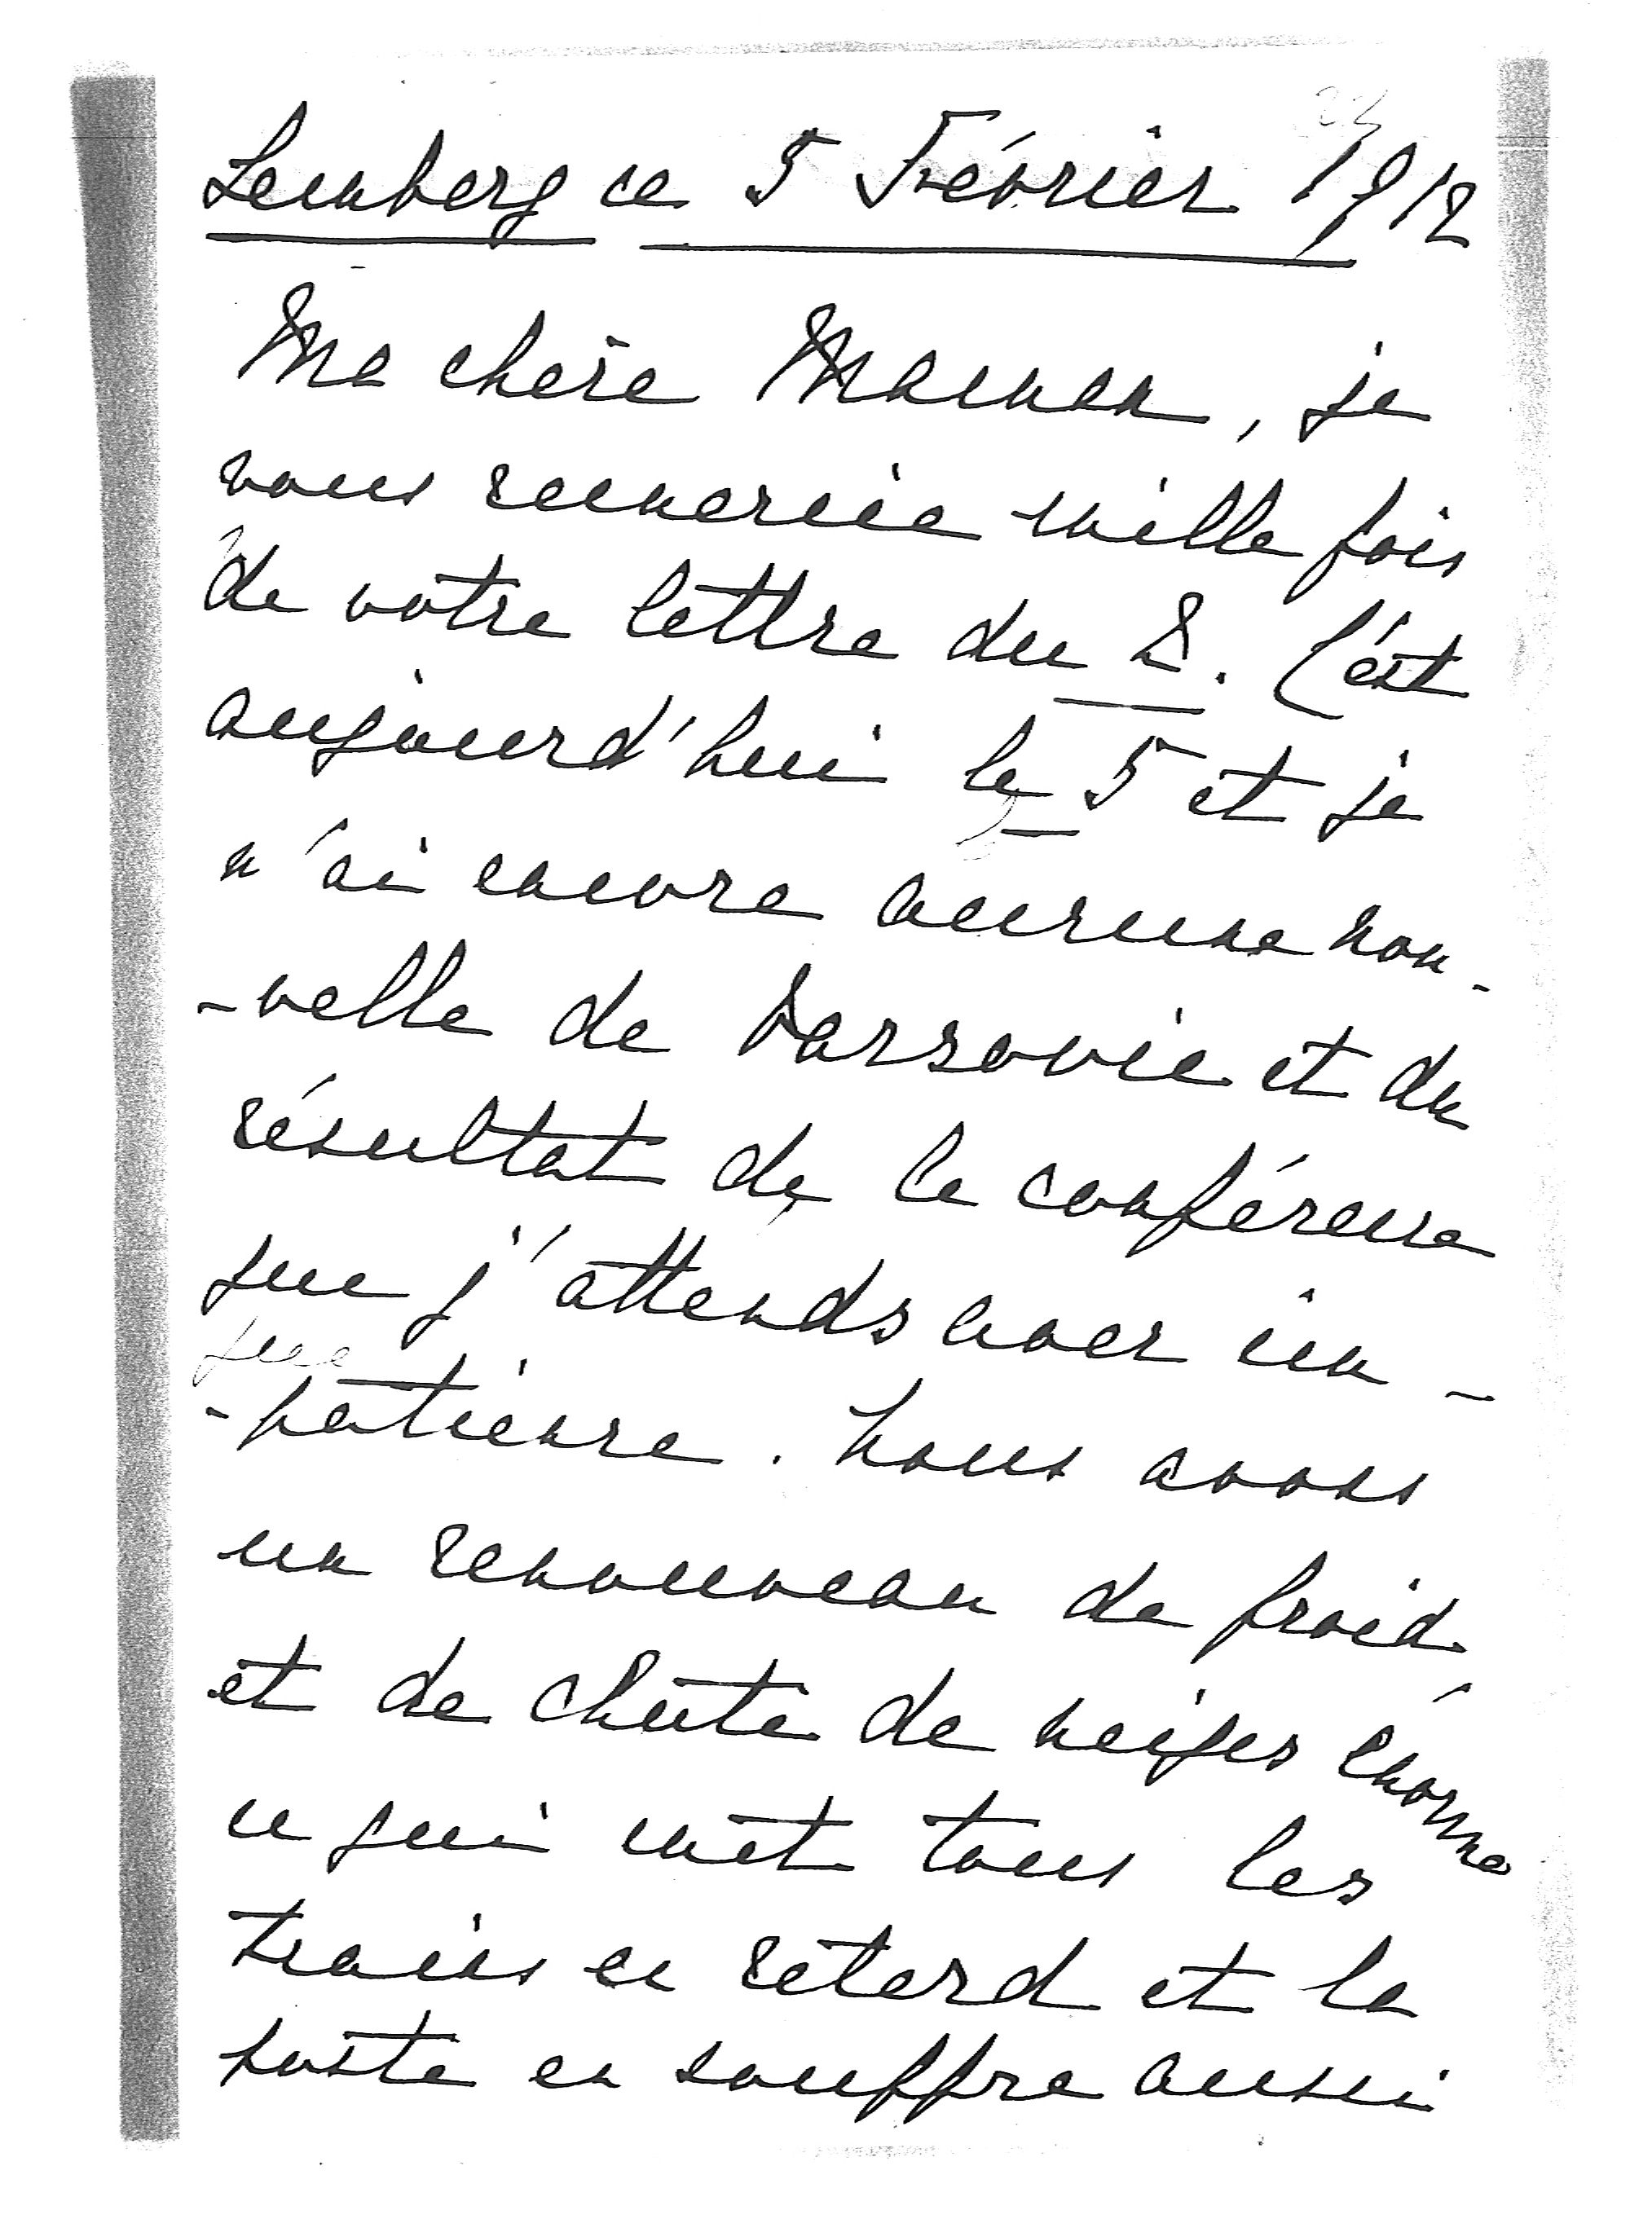 Lemberg ce 5 Février 1912
Ma chère Maman, je
vous remercie mille fois
de votre lettre du 2. C'est
aujourd'hui le 5 et je
n'ai encore aucune nou-
-velle de Varsovie et du
résultat de la conférence
que j'attends avec im-
-patience. Nous avons
un renouveau de froid
et de chute de neiges énorme
ce qui met tous les
trains en retard et la
poste en souffre aussi